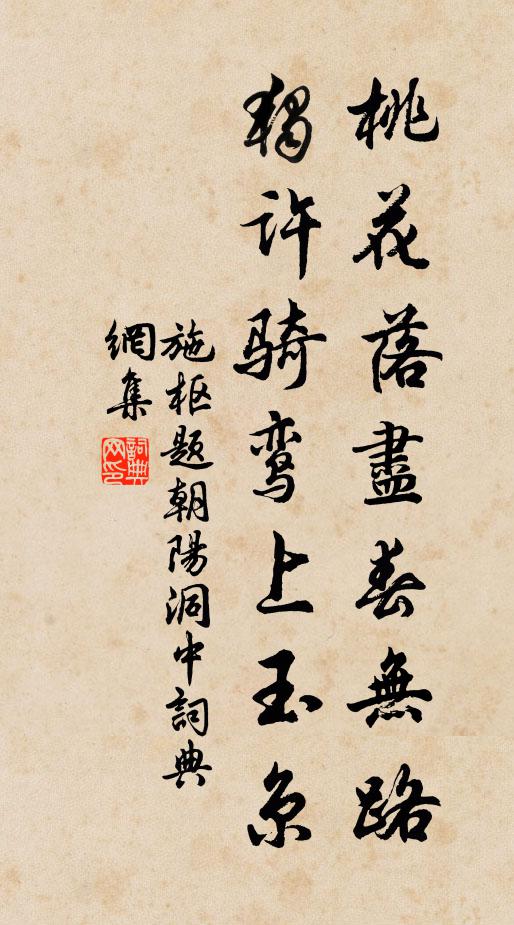 桃花落盡春無路
獨許骑鸾上玉京
施枢题朝陽洞中詞典
網集
詞典網印